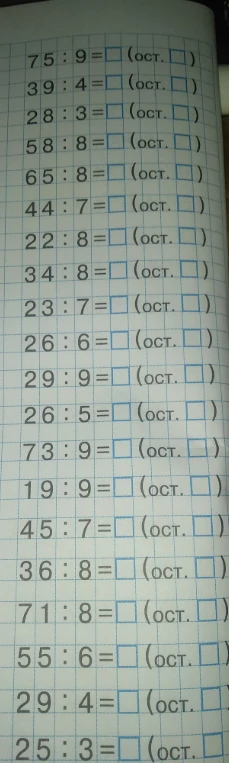 75:9=□ (ост. □)
39:4=□ (ост. □)
28:3=□ (ост. □)
58:8=□ (ост. □)
65:8=□ (ост. □)
44:7=□ (ост. □)
22:8=□ (ост. □)
34:8=□ (ост. □)
23:7=□ (ост. □)
26:6=□ (ост. □)
29:9=□ (ост. □)
26:5=□ (ост. □)
73:9=□ (ост. □)
19:9=□ (ост. □)
45:7=□ (ост. □)
36:8=□ (ост. □)
71:8=□ (ост. □)
55:6=□ (ост. □)
29:4=□ (ост. □)
25:3=□ (ост. □